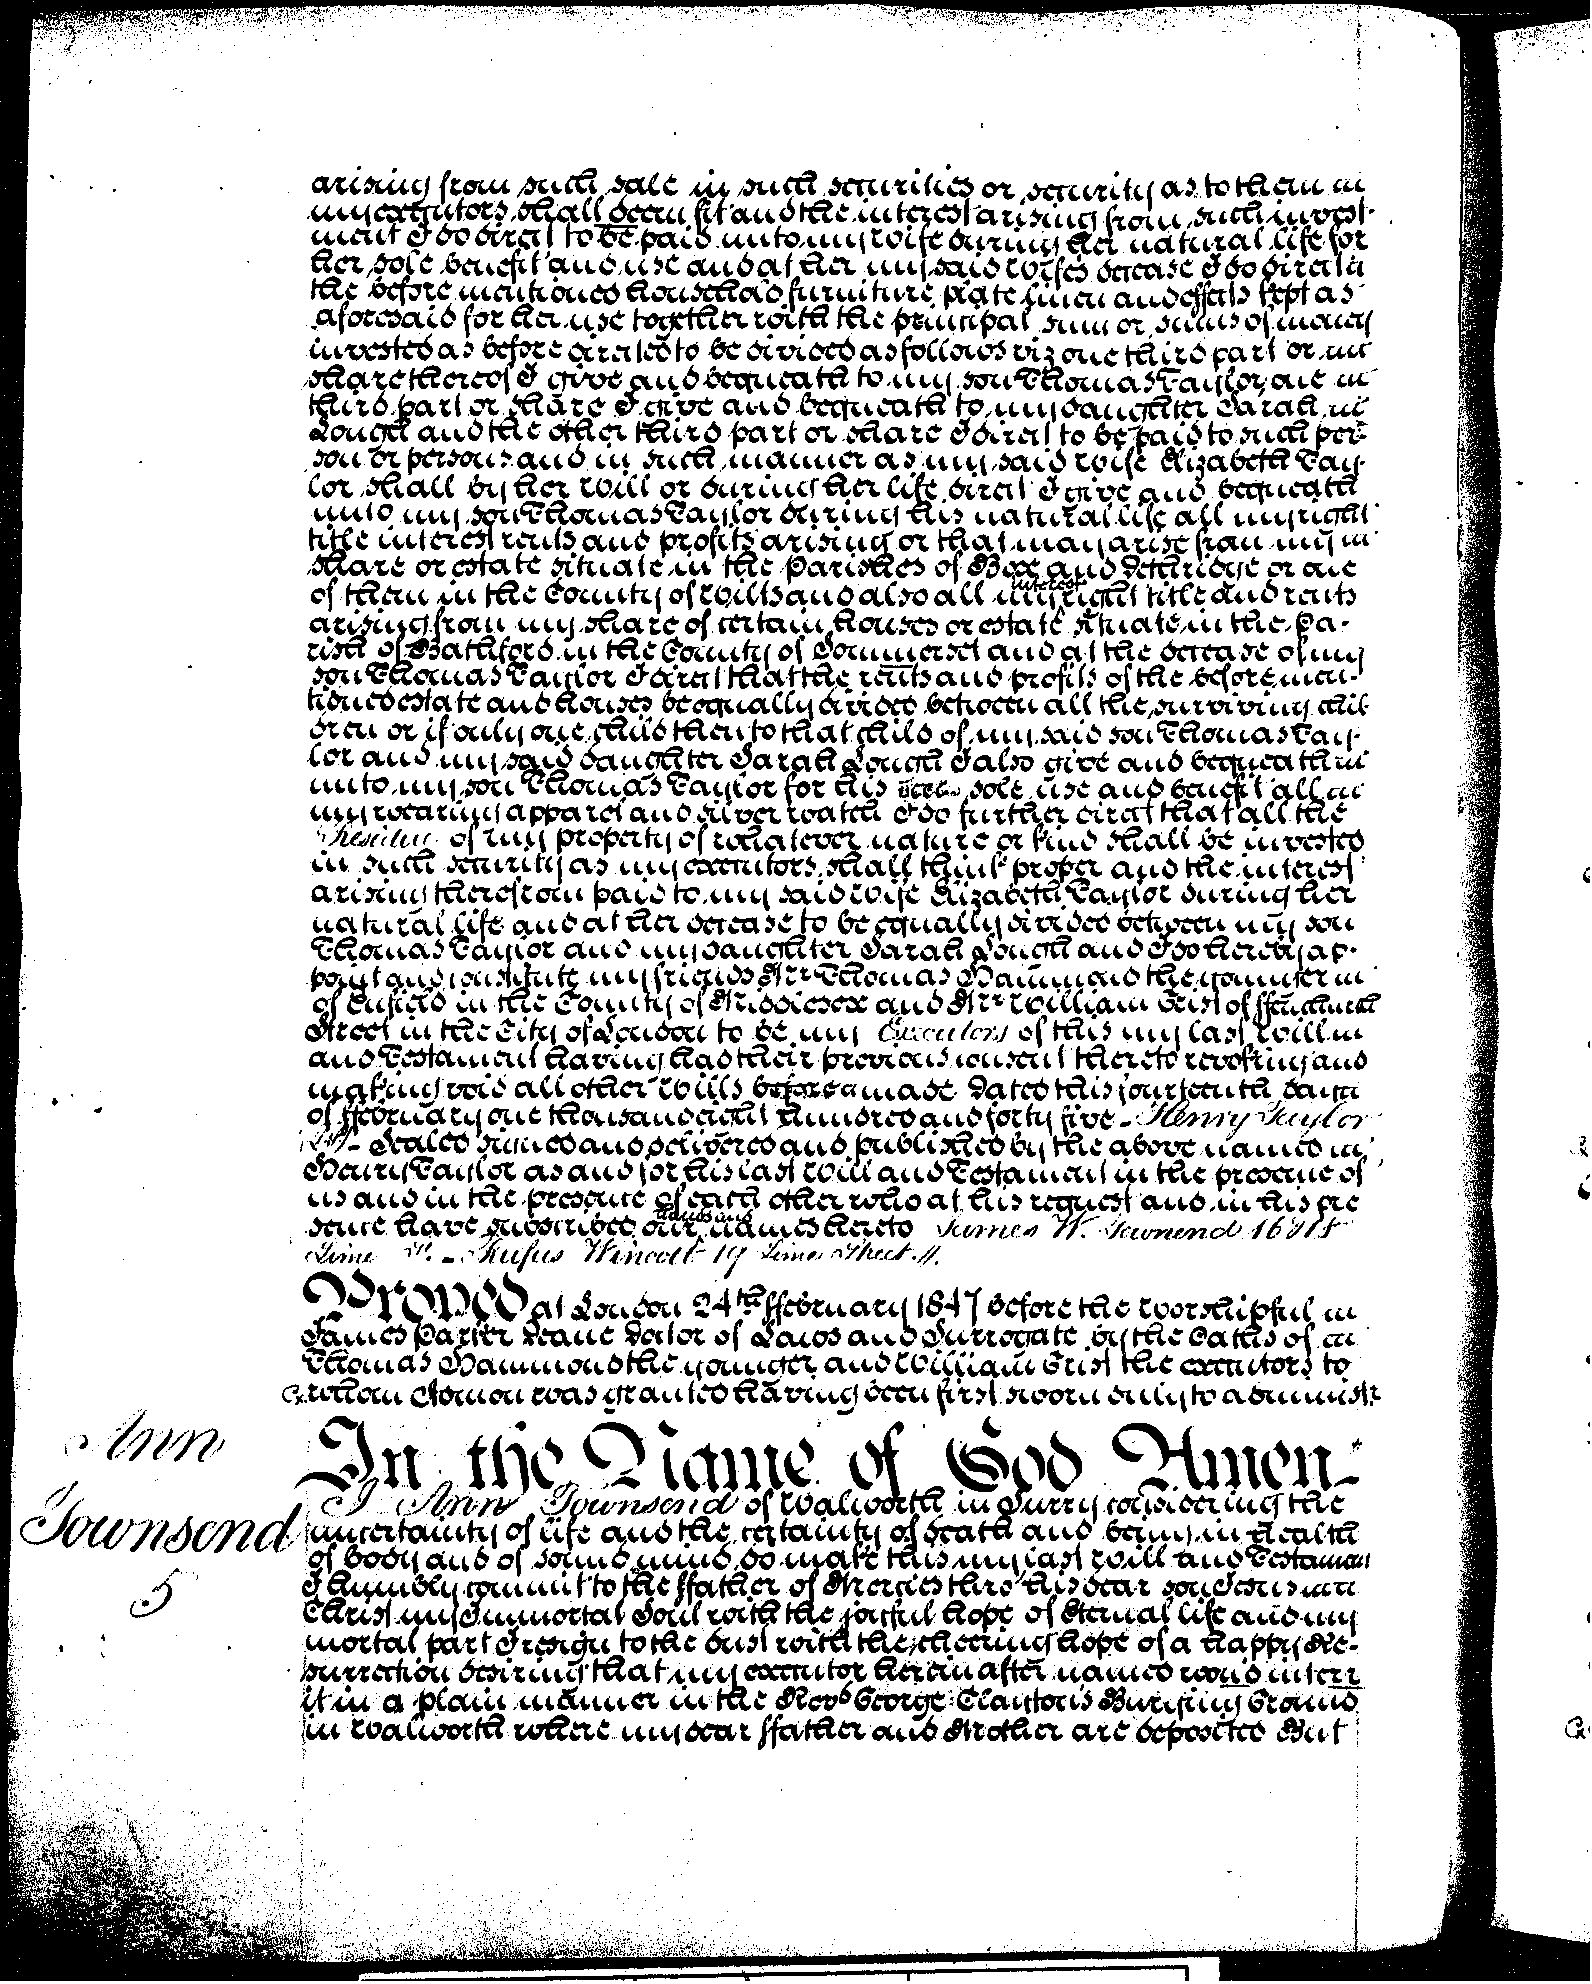 arising from such sale in such securities or security as to them
my executors shall seem fit and the interest arising from such invest-
ment I do direct to be paid unto my wife during her natural life for
her sole benefit and use and at her my said wifes decease I do direct
the before mentioned household furniture plate linen and effects kept as
aforesaid for her use together with the principal sum or sums of money
invested as before directed to be divided as follows viz one third part or
share thereof I give and bequeath to my son Thomas Taylor one
third part or share I give and bequeath to my daughter Sarah
Lough and the other third part or share I direct to be paid to such per-
son or persons and in such manner as my said wife Elizabeth Tay-
lor shall by her Will or during her life direct I give and bequeath
unto my son Thomas Taylor during his natural life all my right
title interest rents and profits arising or that may arise from my
share or estate situate in the Parishes of Box and Ditteridge or one
of them in the County of Wilts and also all my right interest title and rents
arising from my share of certain houses or estate situate in the Pa-
rish of Bathford in the County of Sommerset and at the decease of my
son Thomas Taylor I direct that the rents and profits of the before men-
tioned estate and houses be equally divided between all the surviving chil-
dren or if only one child then to that child of my said son Thomas Tay-
lor and my said daughter Sarah Lough I also give and bequeath
unto my son Thomas Taylor for his sole use and benefit all
my wearing apparel and silver watch I do further direct that all the
Residue of my property of whatever nature or kind shall be invested
in such security as my executors shall think proper and the interest
arising therefrom paid to my said wife Elizabeth Taylor during her
natural life and at her decease to be equally divided between my son
Thomas Taylor and my daughter Sarah Lough and I do hereby ap-
point and constitute my friends Mr Thomas Hammond the younger
of Enfield in the County of Middlesex and Mr William Grist of ffenchurch
Street in the City of London to be my Executors of this my last Will
and Testament having had their previous consent thereto revoking and
making void all other Wills before made Dated this fourteenth day
of ffebruary one thousand eight hundred and forty five - Henry Taylor
Sealed signed and delivered and published by the above named
Henry Taylor as and for his last Will and Testament in the presence of
us and in the presence of each other who at his request and in his pre
sence have subscribed our names hereto James W. Townend 16
Lime St. - Rufus Wincott 19 Lime Street.
Proved at London 24th ffebruary 1847 before the worshipful
James Parker Deane Doctor of Laws and Surrogate by the Oaths of
Thomas Hammond the younger and William Grist the executors to
whom Admon was granted having been first sworn duly to administer
Ann
Townsend
5
In the Name of God Amen -
I Ann Townsend of Walworth in Surry considering the
uncertainty of life and the certainty of death and being in health
of body and of sound mind do make this my last Will and Testament
I humbly commit to the ffather of Mercies thro' his dear son Jesus
Christ my Immortal Soul with the joyful hope of Eternal life and my
mortal part I resign to the dust with the cheering hope of a happy Re-
surrection desiring that my executor herein after named would interr
it in a plain manner in the Revd George Clayton's Burying Ground
in Walworth where my dear ffather and Mother are deposited But